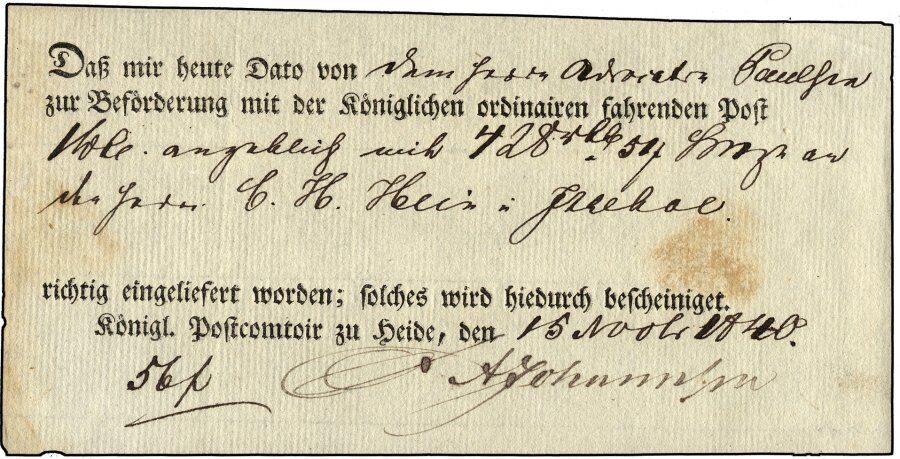 Daß mir heute Dato von dem Herrn Advocaten Paulsen
zur Beförderung mit der Königlichen ordinairen fahrenden Post
angeblich mit 428 rbt. 54 an
den Herrn C. H. Hein in Itzehoe.
richtig eingeliefert worden; solches wird hiedurch bescheiniget.
Königl. Postcomtoir zu Heide, den 15 Novbr 1840.
56 Johannsen